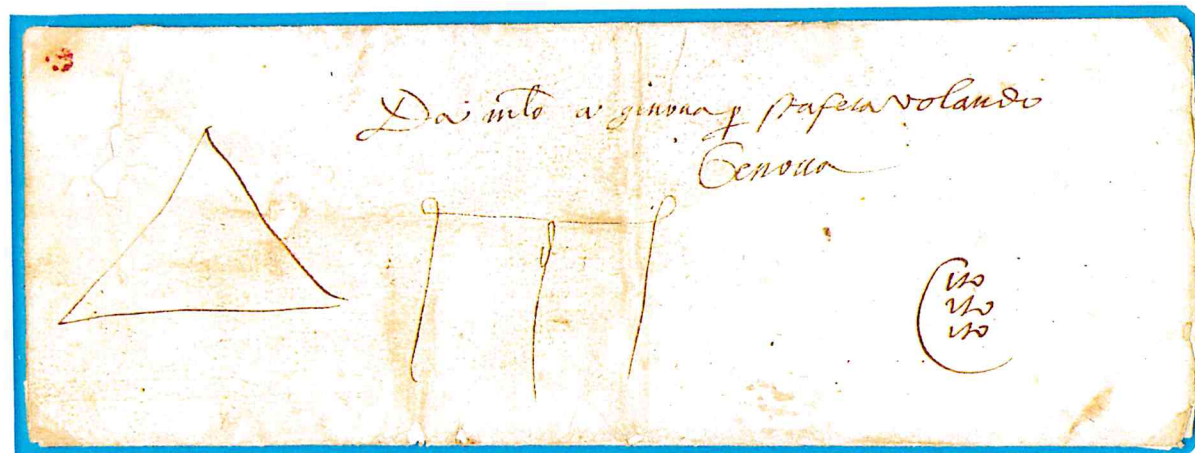 Da mlo a genoua p stafeta volando
Genoua
Cito
ito
ito